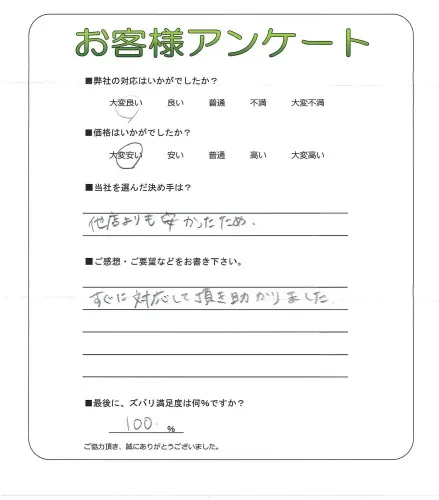 お客様アンケート
■弊社の対応はいかがでしたか？
大変良い 良い 普通 不満 大変不満
■価格はいかがでしたか？
大変安い 安い 普通 高い 大変高い
■当社を選んだ決め手は？
他店よりも安かったため、
■ご感想・ご要望などをお書き下さい。
すぐに対応して頂き助かりました
■最後に、ズバリ満足度は何%ですか？
100. %
ご協力頂き、誠にありがとうございました。